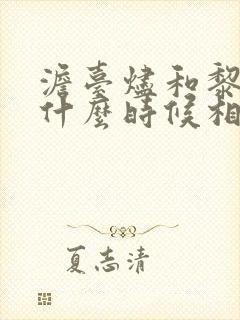 澹臺燼和黎
什麼時候相
夏志清